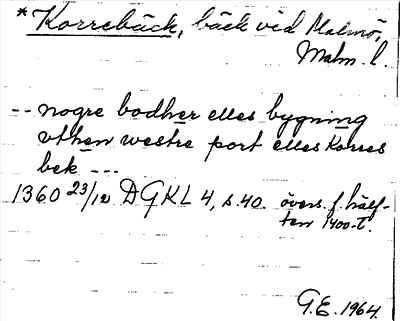 *Korrebäck, bäck vid Malmö,
Malm. l.
-- nogre bodher elles bygning
vthen westre port elles Korres
bek ---
1360 23/12 DGKL 4, s. 40. övers. f. hälf-
ten 1400-t.
G.E. 1964.